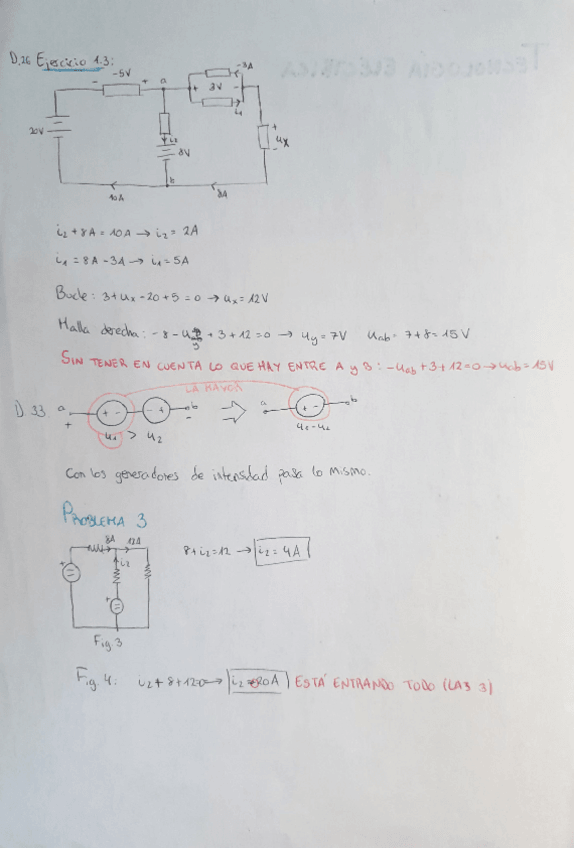 TECNOLOGÍA ELÉCTRICA
D.26 Ejercicio 1.3:
-5V
- + a
-3A
+ 3V -
i1
20V
i2
8V
+ ux -
b
10A
8A
i2 + 8A = 10A → i2 = 2A
i1 = 8A - 3A → i1 = 5A
Bucle: 3 + ux - 20 + 5 = 0 → ux = 12V
Malla derecha: -8 - uy + 3 + 12 = 0 → uy = 7V uab = 7+8 = 15V
SIN TENER EN CUENTA LO QUE HAY ENTRE A y B: -uab + 3 + 12 = 0 → uab = 15V
LA MAYOR
D.33. a + - - + b a + - b
+ -
u1 > u2 u1 - u2
Con los generadores de intensidad pasa lo mismo.
PROBLEMA 3
8A 12A
i2
+
+
8 + i2 = 12 → i2 = 4A
Fig. 3
Fig. 4: i2 + 8 + 12 = 0 → i2 = -20A ESTÁ ENTRANDO TODO (LAS 3)